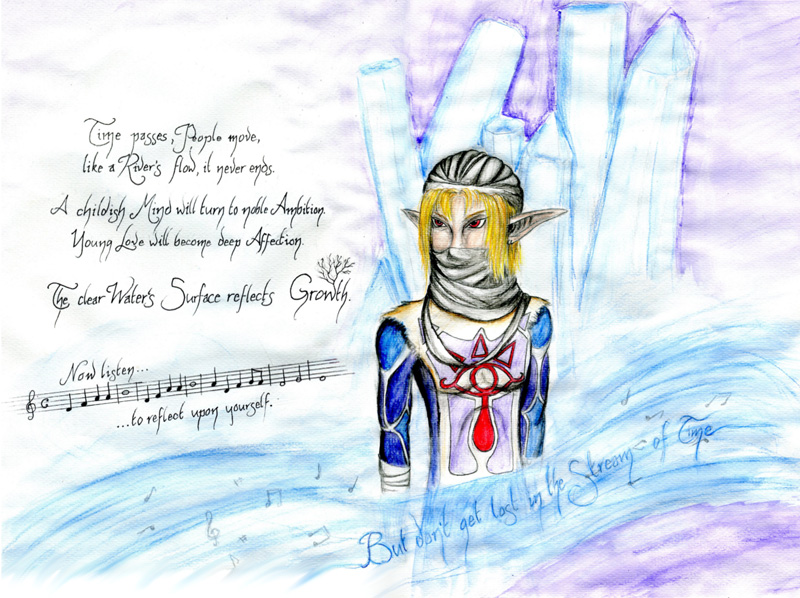 Time passes, People move,
like a River's flow, it never ends.
A childish Mind will turn to noble Ambition.
Young Love will become deep Affection.
The clear Water's Surface reflects Growth.
Now listen...
...to reflect upon yourself.
But don't get lost in the Stream of Time